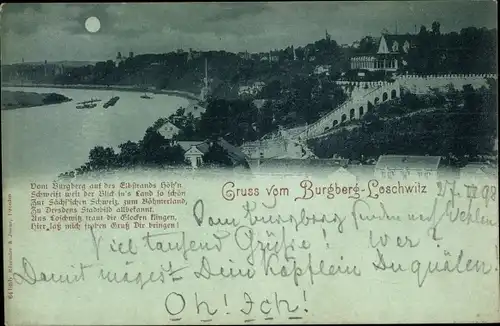 Vom Burgberg auf des Elbstrands Höh'n
Schweift weit der Blick in's Land so schön
Zur Sächs'schen Schweiz, zum Böhmerland,
Zu Dresdens Stadtbild allbekannt.
Aus Loschwitz traut die Glocken klingen,
Hier laß mich frohen Gruß Dir bringen!
Gruss vom Burgberg-Loschwitz
Vom Burgberg
Viel tausend Grüße! Wer?
Damit magst Dein Köpflein Du quälen.
Oh! Ich!